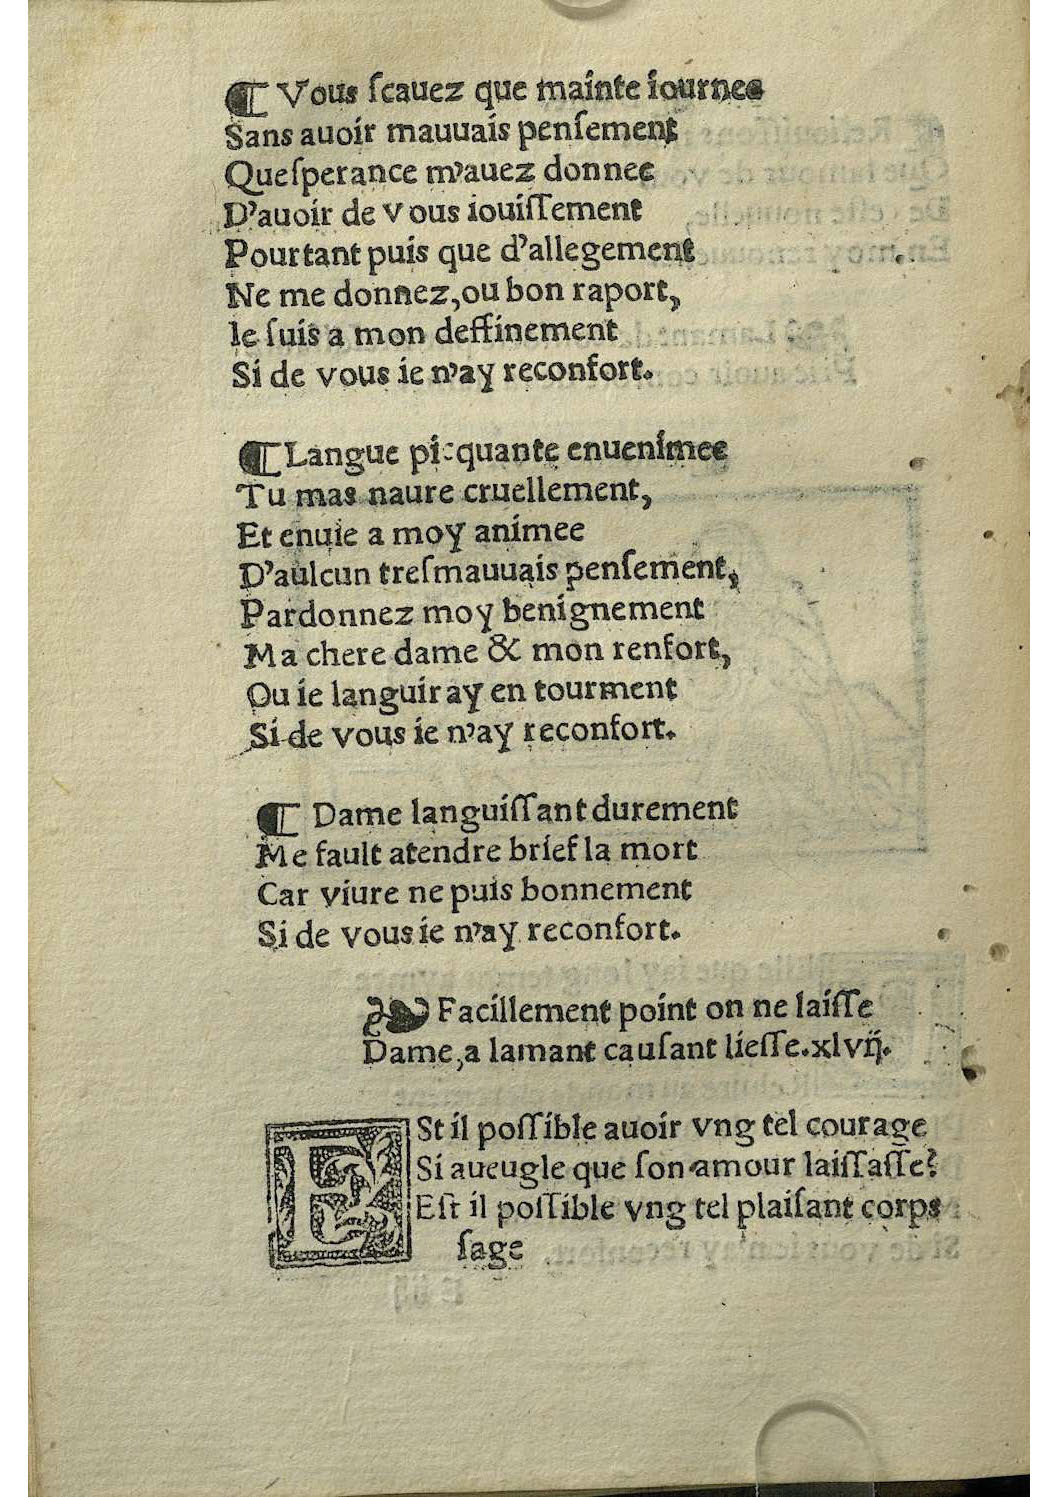 ¶ Vous ſcauez que mainte iournee
Sans auoir mauuais penſement
Queſperance m'auez donnee
D'auoir de vous iouiſſement
Pourtant puis que d'allegement
Ne me donnez, ou bon raport,
Ie ſuis a mon deffinement
Si de vous ie n'ay reconfort.
¶ Langue picquante enuenimee
Tu mas naure cruellement,
Et enuie a moy animee
D'aulcun treſmauuais penſement,
Pardonnez moy benignement
Ma chere dame & mon renfort,
Ou ie languiray en tourment
Si de vous ie n'ay reconfort.
¶ Dame languiſſant durement
Me fault atendre brief la mort
Car viure ne puis bonnement
Si de vous ie n'ay reconfort.
❧ Facillement point on ne laiſſe
Dame, a lamant cauſant lieſſe. xlvij.
ESt il poſſible auoir vng tel courage
Si aueugle que ſon amour laiſſaſſe?
Eſt il poſſible vng tel plaiſant corps
ſage